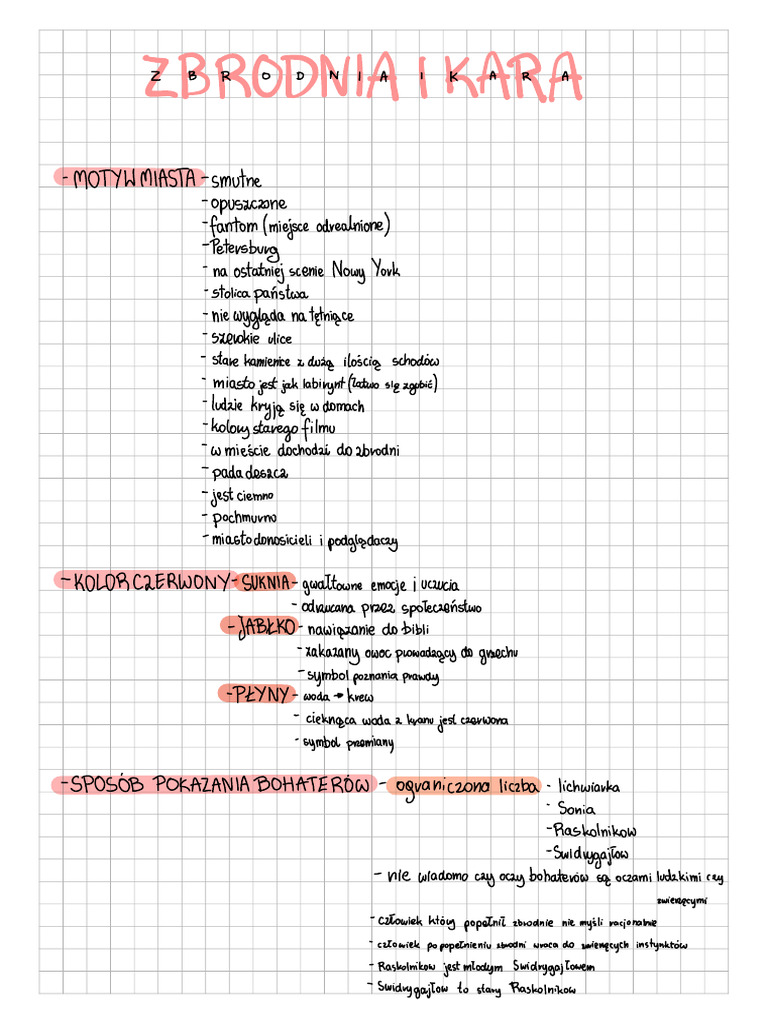 ZBRODNIA I KARA
ZBRODNIA I KARA
- MOTYW MIASTA - smutne
- opuszczone
- fantom (miejsce odrealnione)
- Petersburg
- na ostatniej scenie Nowy York
- stolica państwa
- nie wygląda na tętniące
- szerokie ulice
- stare kamienice z dużą ilością schodów
- miasto jest jak labirynt (łatwo się zgubić)
- ludzie kryją się w domach
- kolory starego filmu
- w mieście dochodzi do zbrodni
- pada deszcz
- jest ciemno
- pochmurno
- miasto donosicieli i podglądaczy
- KOLOR CZERWONY - SUKNIA - gwałtowne emocje i uczucia
- odrzucana przez społeczeństwo
- JABŁKO - nawiązanie do bibli
- zakazany owoc prowadzący do grzechu
- symbol poznania prawdy
- PŁYNY - woda → krew
- cieknąca woda z kranu jest czerwona
- symbol przemiany
- SPOSÓB POKAZANIA BOHATERÓW - ograniczona liczba - lichwiarka
- Sonia
- Raskolnikow
- Swidrygajłow
- nie wiadomo czy oczy bohaterów są oczami ludzkimi czy
zwierzęcymi
- człowiek który popełnił zbrodnie nie myśli racjonalnie
- człowiek po popełnieniu zbrodni wraca do zwierzęcych instynktów
- Raskolnikow jest młodym Swidrygajłowem
- Swidrygajłow to stary Raskolnikow